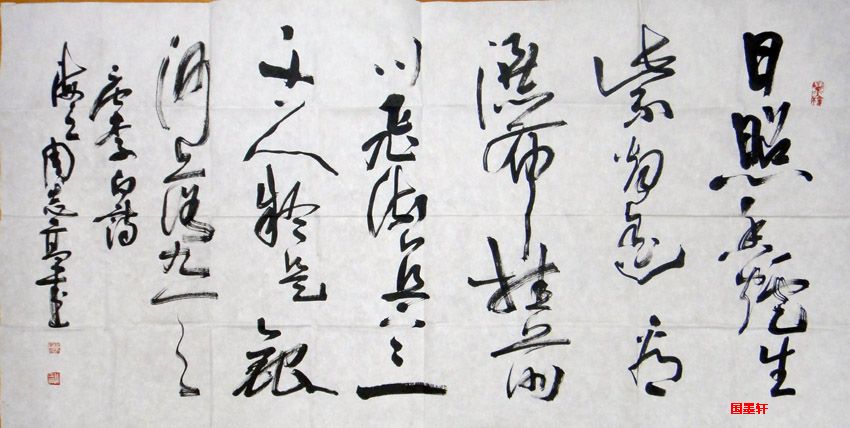 日照香爐生
紫烟遥看
瀑布挂前
川飛流直下三
千尺疑是銀
河落九天
唐李白詩
海上周志高書
国墨轩